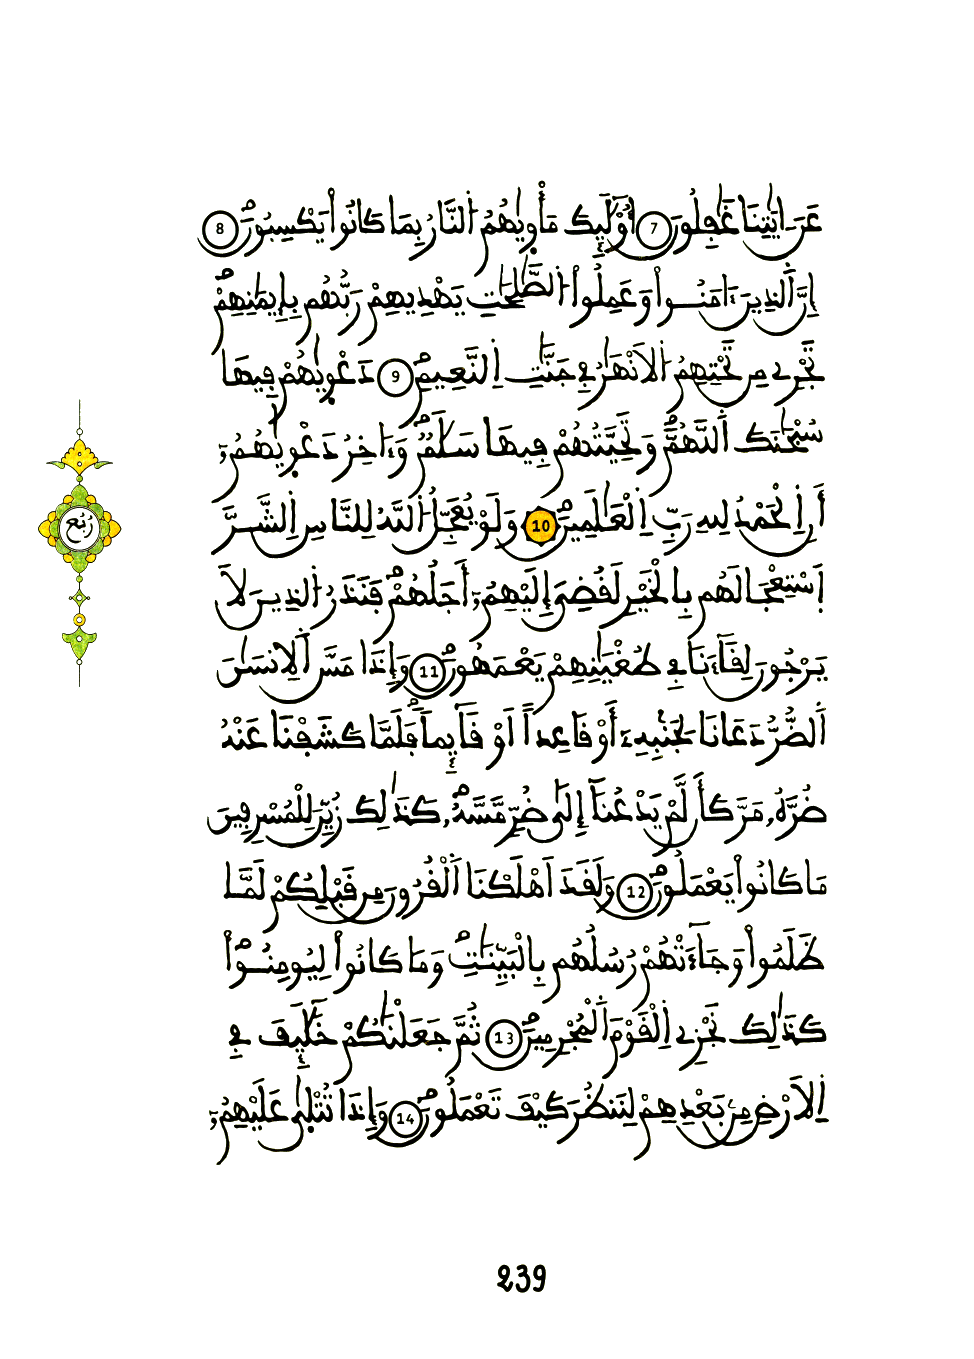 عَنَ اٰيَٰتِنَا غَٰفِلُونَ 7 أُوْلَٰٓئِكَ مَأْوٜىٰهُمُ اُ۬لنَّارُ بِمَا كَانُواْ يَكْسِبُونَۖ 8
إِنَّ اَ۬لذِينَ ءَامَنُواْ وَعَمِلُواْ اُ۬لصَّٰلِحَٰتِ يَهْدِيهِمْ رَبُّهُم بِإِيمَٰنِهِمْۖ
تَجْرِے مِن تَحْتِهِمُ اُ۬لَانْهَٰرُ فِے جَنَّٰتِ اِ۬لنَّعِيمِۖ 9 دَعْوٜىٰهُمْ فِيهَا
سُبْحَٰنَكَ اَ۬للَّهُمَّۖ وَتَحِيَّتُهُمْ فِيهَا سَلَٰمٌۖ وَءَاخِرُ دَعْوٜىٰهُمُۥٓ
أَنِ اِ۬لْحَمْدُ لِلهِ رَبِّ اِ۬لْعَٰلَمِينَۖ 10 وَلَوْ يُعَجِّلُ اُ۬للَّهُ لِلنَّاسِ اِ۬لشَّرَّ
اَ۪سْتِعْجَالَهُم بِالْخَيْرِ لَقُضِيَ إِلَيْهِمُۥٓ أَجَلُهُمْۖ فَنَذَرُ اُ۬لذِينَ لَا
يَرْجُونَ لِقَآءَنَا فِے طُغْيَٰنِهِمْ يَعْمَهُونَۖ 11 وَإِذَا مَسَّ اَ۬لِانسَٰنَ
اَ۬لضُّرُّ دَعَانَا لِجَنۢبِهِۦٓ أَوْ قَاعِداً اَوْ قَآئِماٗۖ فَلَمَّا كَشَفْنَا عَنْهُ
ضُرَّهُۥ مَرَّ كَأَن لَّمْ يَدْعُنَآ إِلَىٰ ضُرّٖ مَّسَّهُۥۖ كَذَٰلِكَ زُيِّنَ لِلْمُسْرِفِينَ
مَا كَانُواْ يَعْمَلُونَۖ 12 وَلَقَدَ اَهْلَكْنَا اَ۬لْقُرُونَ مِن قَبْلِكُمْ لَمَّا
ظَلَمُواْ وَجَآءَتْهُمْ رُسُلُهُم بِالْبَيِّنَٰتِۖ وَمَا كَانُواْ لِيُومِنُواْۖ
كَذَٰلِكَ نَجْزِے اِ۬لْقَوْمَ اَ۬لْمُجْرِمِينَۖ 13 ثُمَّ جَعَلْنَٰكُمْ خَلَٰٓئِفَ فِے
اِ۬لَارْضِ مِنۢ بَعْدِهِمْ لِنَنظُرَ كَيْفَ تَعْمَلُونَۖ 14 وَإِذَا تُتْلٜىٰ عَلَيْهِمُۥٓ
رُبُع
239